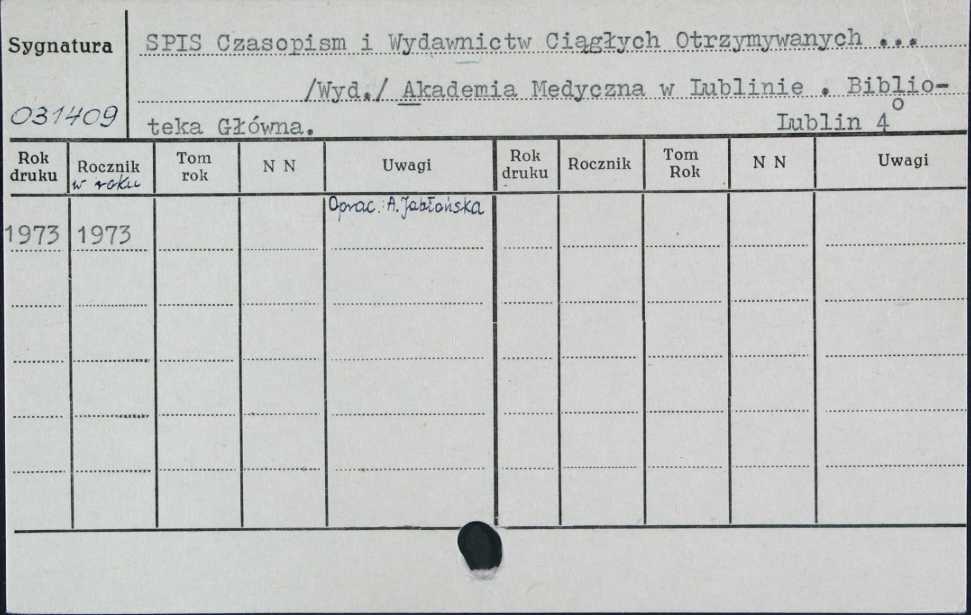 Sygnatura
SPIS Czasopism i Wydawnictw Ciągłych Otrzymywanych ...
/Wyd./ Akademia Medyczna w Lublinie . Biblio-
031409
teka Główna. Lublin 4°
Rok druku Rocznik w roku Tom rok N N Uwagi Rok druku Rocznik Tom Rok N N Uwagi
Oprac. A. Jabłońska
1973 1973